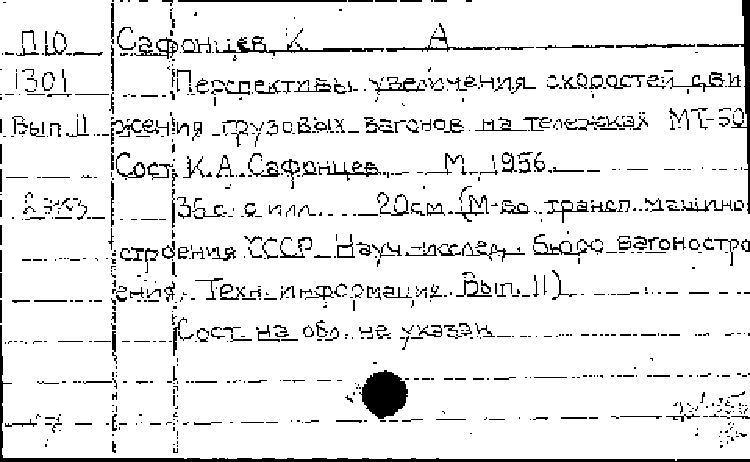 П10 Сафонцев, К А
1301 Перспективы увеличения скоростей дви
Вып. II жения грузовых вагонов на тележках МТ-50
Сост. К.А. Сафонцев. М., 1956.
2 экз 36 с. с илл. 20 см. (М-во трансп. машино
строения СССР. Науч.-исслед. бюро вагоностро
ения. Техн. информация. Вып. II)
Сост. на обл. не указан